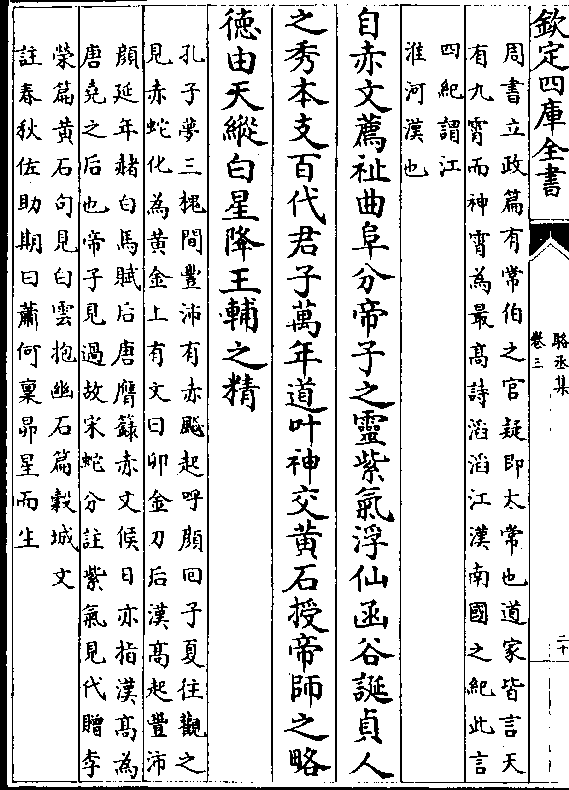 欽定四庫全書
駱丞集
卷三
二十
周書立政篇有常伯之官疑即太常也道家皆言天
有九霄而神霄為最髙詩滔滔江漢南國之紀此言
四紀謂江
淮河漢也
自赤文薦祉曲阜分帝子之靈紫氣浮仙函谷誕貞人
之秀本支百代君子萬年道叶神交黄石授帝師之略
徳由天縱白星降王輔之精
孔子夢三槐間豐沛有赤颷起呼顔回子夏往觀之
見赤蛇化為黄金上有文曰卯金刀后漢髙起豐沛
顔延年赭白馬賦后唐膺籙赤文候日亦指漢髙為
唐堯之后也帝子見過故宋蛇分註紫氣見代贈李
榮篇黄石句見白雲抱幽石篇榖城文
註春秋佐助期曰蕭何稟昴星而生